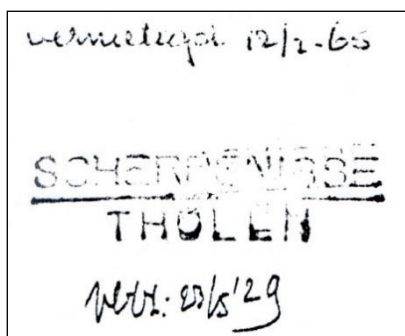 vernietigd 12/2-65
SCHERPENISSE
THOLEN
verz: 23/5'29